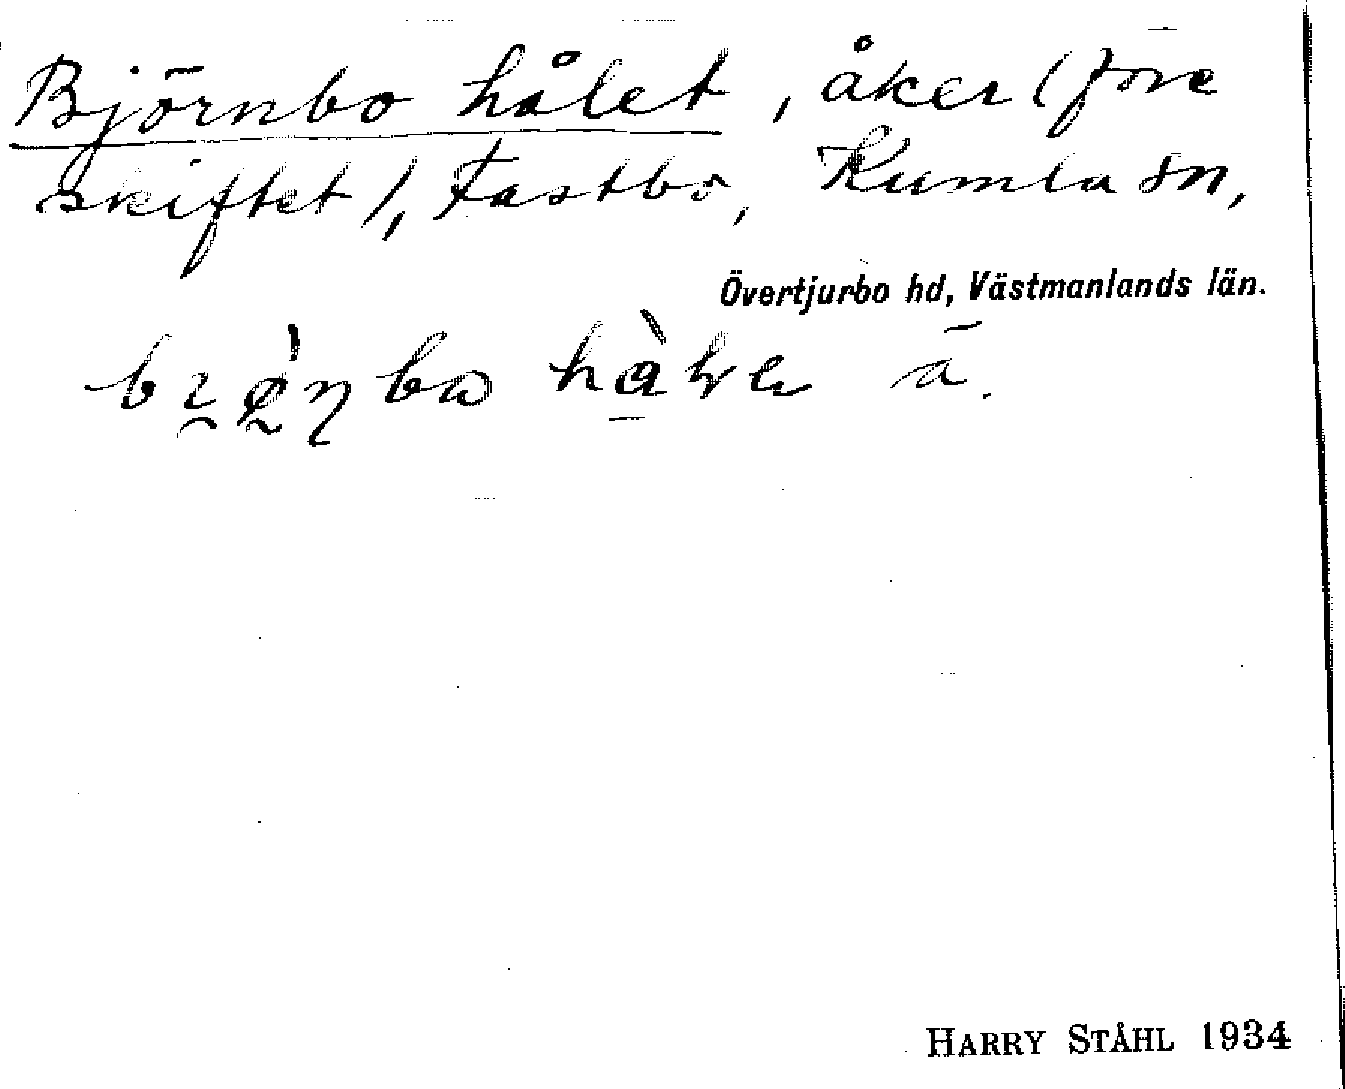 Björnbo hålet, åker (före
skiftet), Fastbo, Kumla sn,
Övertjurbo hd, Västmanlands län.
ā.
HARRY STÅHL 1934